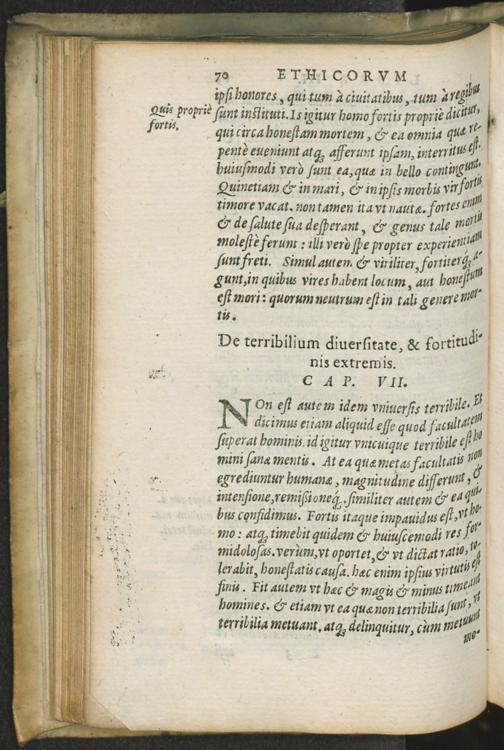 70 ETHICORVM
ipsi honores, qui tum à ciuitatibus, tum à regibus
Quis propriè
fortis.
sunt instituti. Is igitur homo fortis propriè dicitur,
qui circa honestam mortem, & ea omnia quæ re-
pentè eueniunt atq; afferunt ipsam, interritus est.
huiusmodi verò sunt ea, quæ in bello contingunt.
Quinetiam & in mari, & in ipsis morbis vir fortis
timore vacat. non tamen ita vt nautæ. fortes enim
& de salute sua desperant, & genus tale mortis
molestè ferunt: illi verò spe propter experientiam
sunt freti. Simul autem & viriliter, fortiterq, a-
gunt, in quibus vires habent locum, aut honestum
est mori: quorum neutrum est in tali genere mor-
tis.
De terribilium diuersitate, & fortitudi-
nis extremis.
CAP. VII.
NOn est autem idem vniuersis terribile. Et
dicimus etiam aliquid esse quod facultatem
superat hominis. id igitur vnicuique terribile est ho
mini sanæ mentis. At ea quæ metas facultatis non
egrediuntur humanæ, magnitudine differunt, &
intensione, remißioneq;. similiter autem & ea qui-
bus confidimus. Fortis itaque impauidus est, vt ho-
mo: atq; timebit quidem & huiuscemodi res for-
midolosas. verùm, vt oportet, & vt dictat ratio, to-
lerabit, honestatis causa. hæc enim ipsius virtutis est
finis. Fit autem vt hæc & magis & minus timeant
homines. & etiam vt ea quæ non terribilia sunt, vt
terribilia metuant. atq; delinquitur, cùm metuunt
mo-